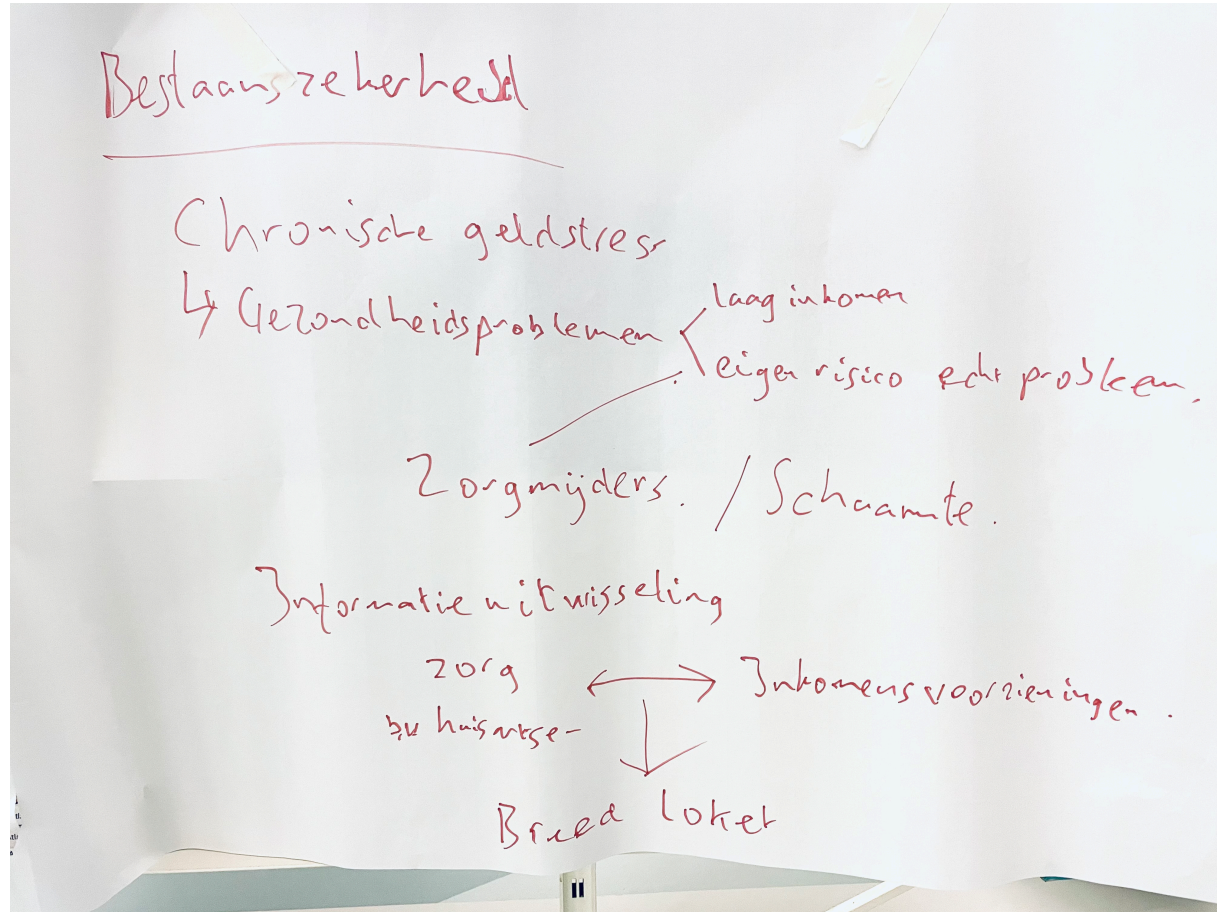 Bestaanszekerheid
Chronische geldstress
↳ Gezondheidsproblemen
laag inkomen
eigen risico echt probleem.
Zorgmijders. / Schaamte.
Informatie uitwisseling
zorg ↔ Inkomensvoorzieningen.
bv huisartsen
Breed loket